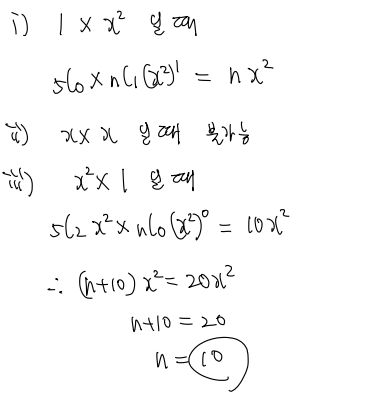 i) 1 × x² 일 때
₅C₀ × ₙC₁(x²)¹ = nx²
ii) x × x 일 때 불가능
iii) x² × 1 일 때
₅C₂ x² × ₙC₀(x²)⁰ = 10x²
∴ (n+10)x² = 20x²
n+10 = 20
n = 10